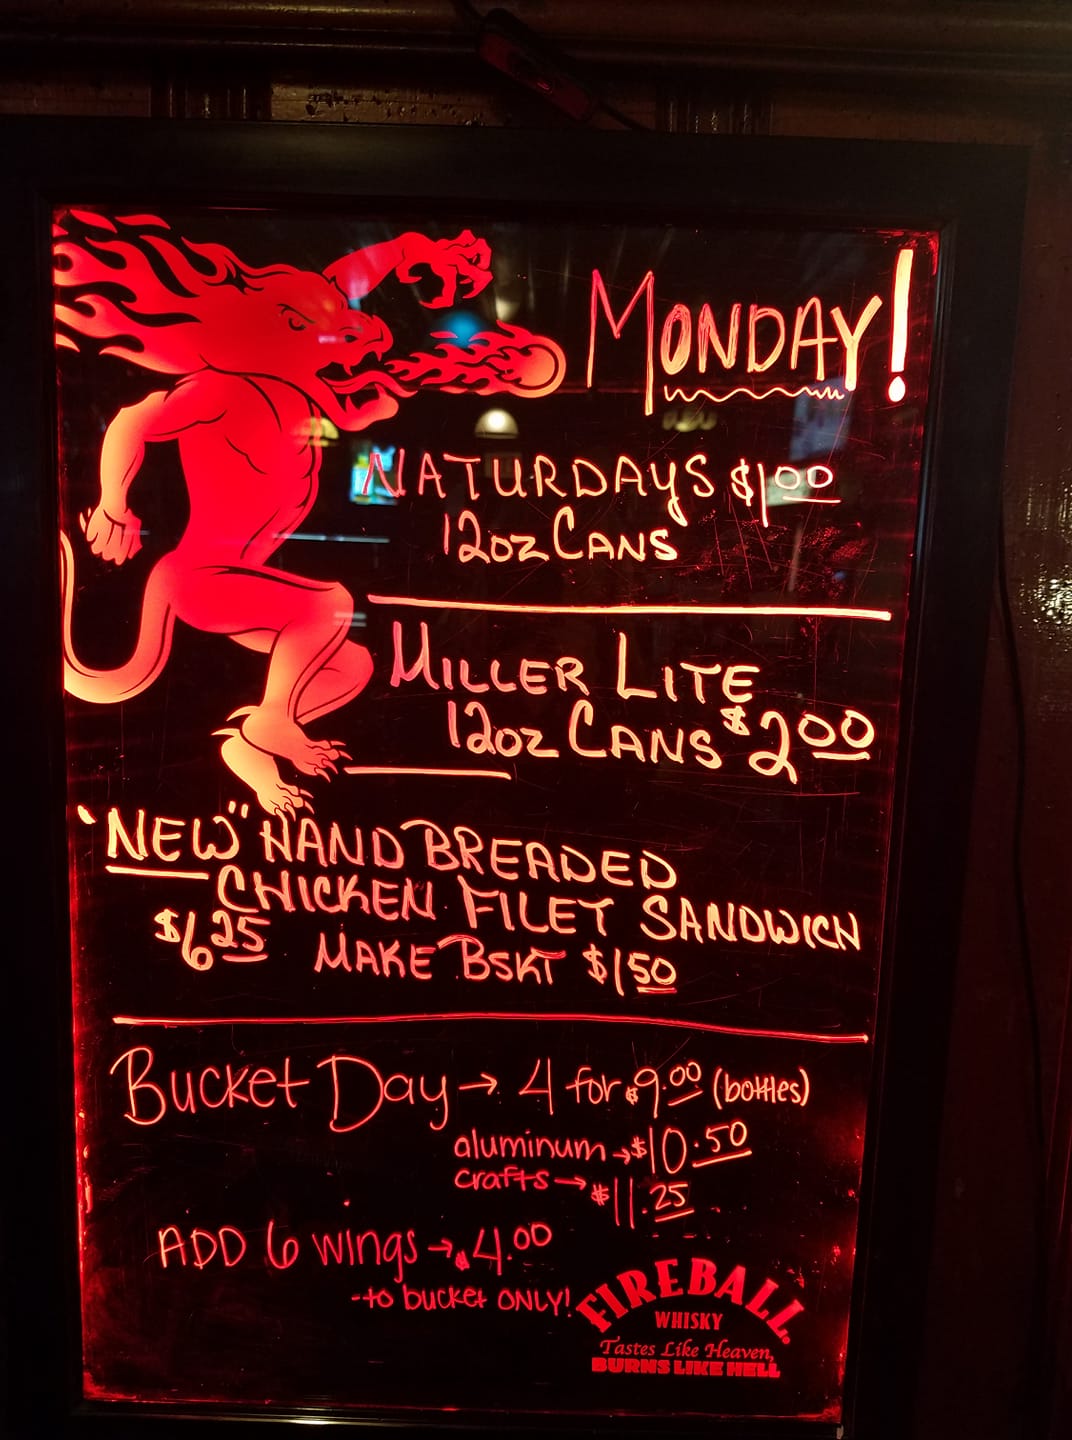 MONDAY!
NATURDAYS $1.00
12oz CANS
MILLER LITE
12oz CANS $2.00
"NEW" HAND BREADED
CHICKEN FILET SANDWICH
$6.25 MAKE BSKT $1.50
Bucket Day → 4 for $9.00 (bottles)
aluminum → $10.50
crafts → $11.25
ADD 6 wings → $4.00
-to bucket ONLY!
FIREBALL
WHISKY
Tastes Like Heaven,
BURNS LIKE HELL